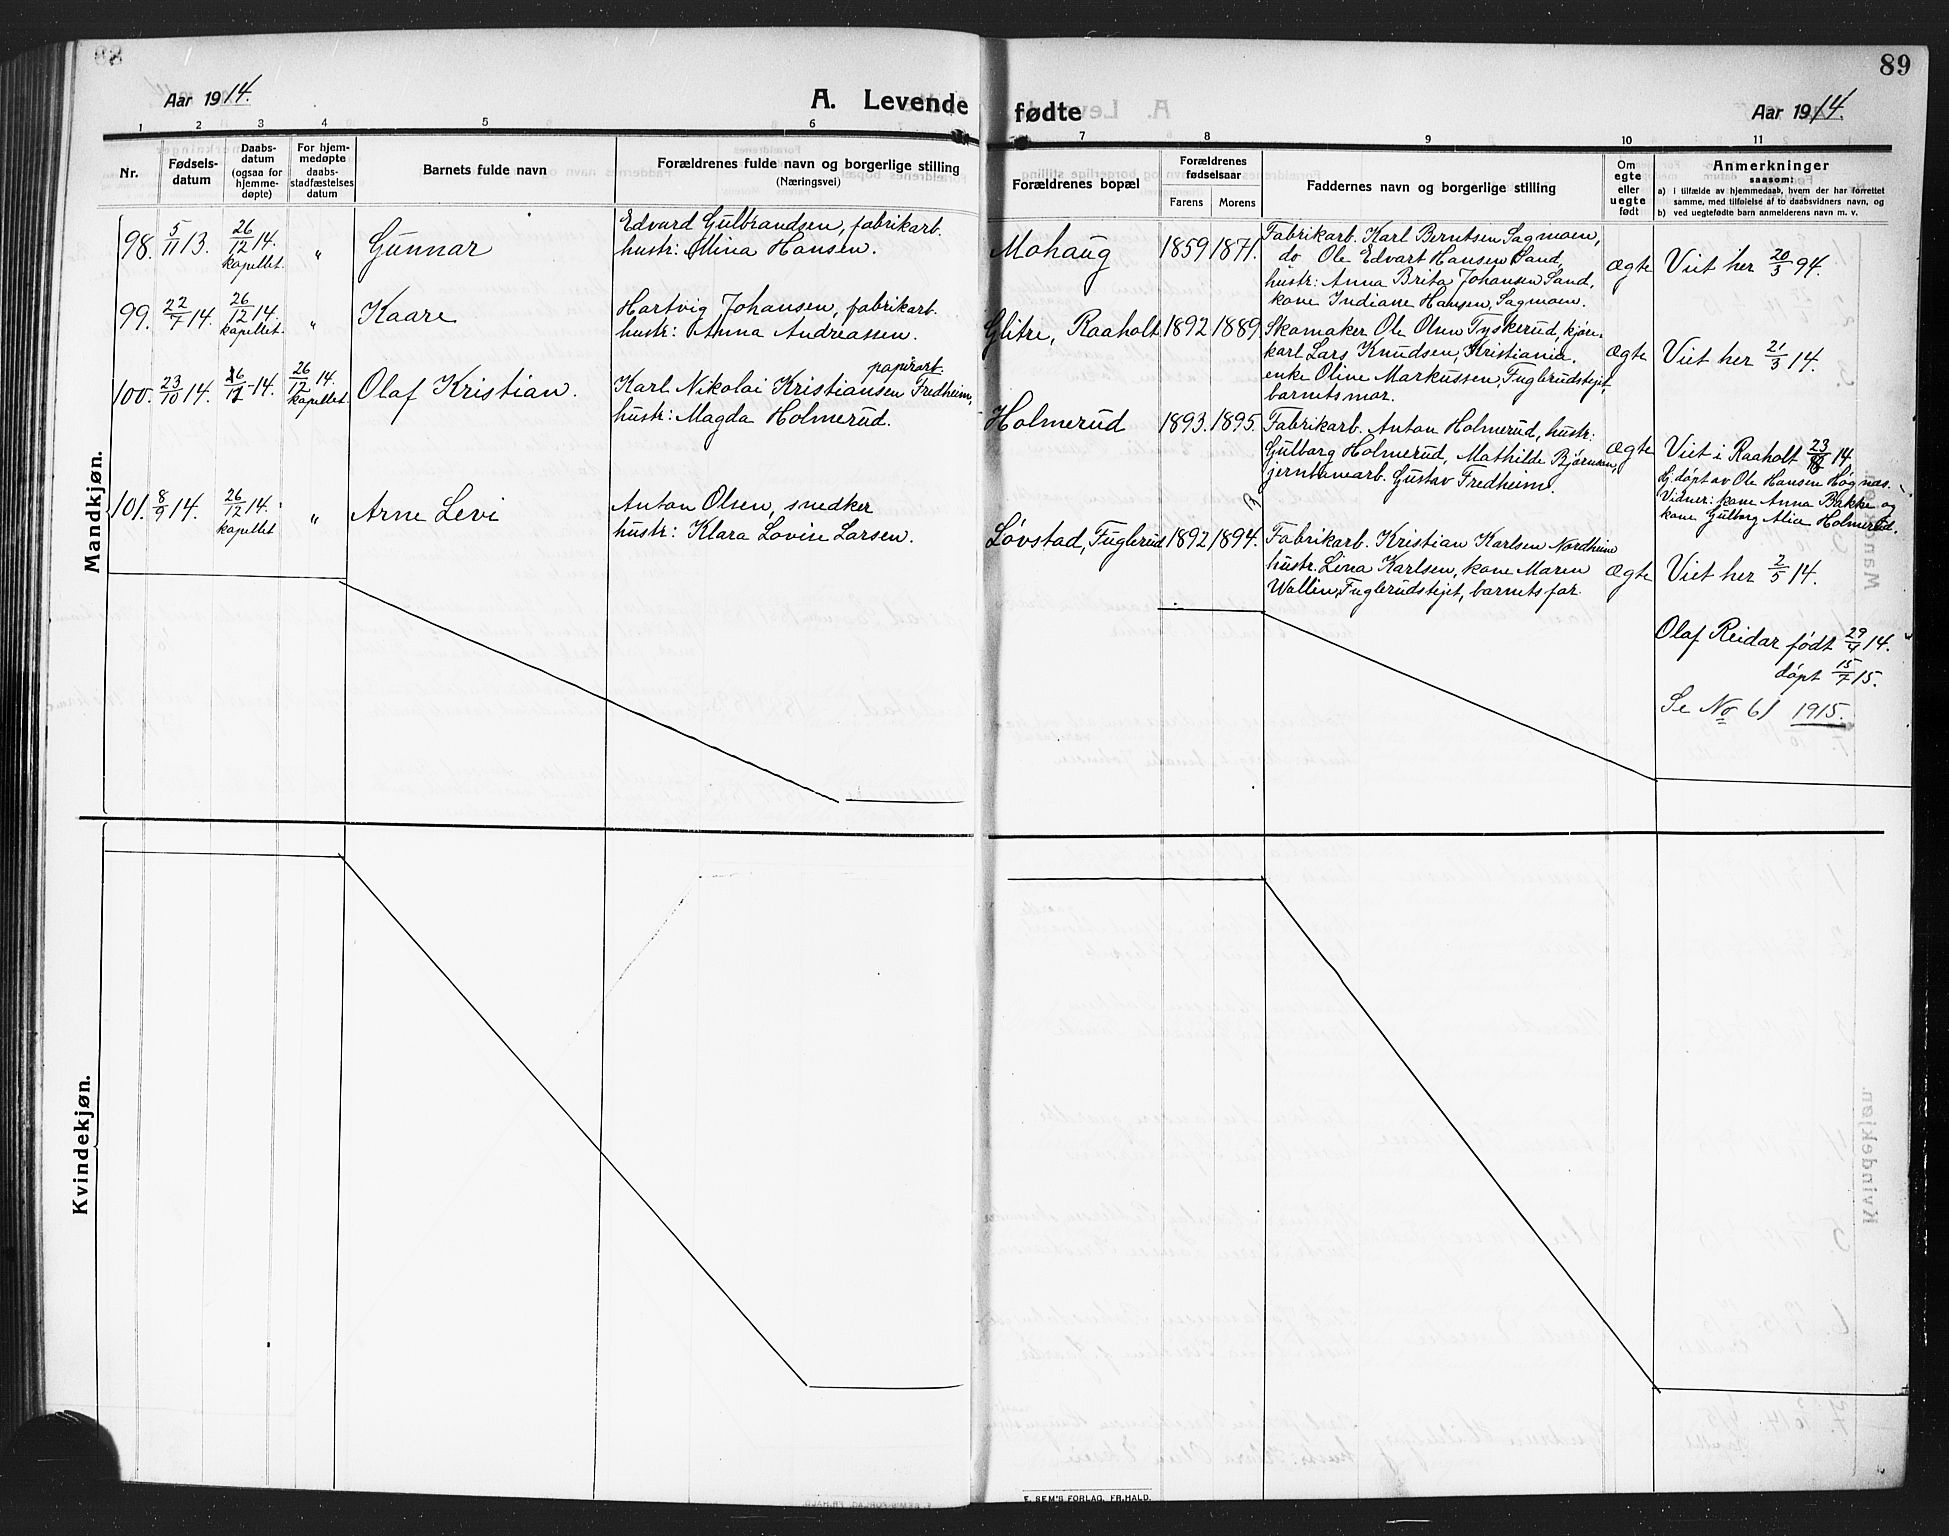 89
Aar 1914.
A. Levende fødte
Aar 1914.
1 2 3 4 5 6 7 8 9 10 11
Nr.
Fødsels-
datum
Daabs-
datum
(ogsaa for
hjemme-
døpte)
For hjem-
medøpte
daabs-
stadfæstelses
datum
Barnets fulde navn
Forældrenes fulde navn og borgerlige stilling
(Næringsvei)
Forældrenes bopæl
Forældrenes
fødselsaar
Farens Morens
Faddernes navn og borgerlige stilling
Om
egte
eller
uegte
født
Anmerkninger
saasom:
a) i tilfælde av hjemmedaab, hvem der har forrettet
samme, med tilføielse af to daabsvidners navn, og
b) ved uegtefødte barn anmelderens navn m. v.
Mandkjøn.
98. 5/11 13. 26/12 14. kapellet. " Gunnar
Edvard Gulbrandsen, fabrikarb.
hustr: Mina Hansen.
Mohaug 1859 1871.
Fabrikarb. Karl Berntsen Sagmoen,
do Ole Edvart Hansen Sand,
hustr: Anna Brita Johansen Sand,
kone Indiane Hansen, Sagmoen.
ægte
Viet her 20/3 94.
99. 22/7 14. 26/12 14. kapellet. " Kaare
Hartvig Johansen, fabrikarb.
hustr: Anna Andreassen.
Glitre, Raaholt 1892 1889
Skomaker Ole Olsen Tyskerud, kjøre-
karl Lars Knudsen, Kristiania.
enke Oline Markussen, Fuglerudstejet,
barnets mor.
ægte
Viet her 21/3 14.
100. 23/10 14. 14. 26/12 14. kapellet Olaf Kristian.
papirarb.
Karl Nikolai Kristiansen Fredheim,
hustr: Magda Holmerud.
Holmerud 1893. 1895.
Fabrikarb. Anton Holmerud, hustr:
Gulborg Holmerud, Mathilde Bjørnsen,
jernbanearb. Gustav Fredheim.
ægte
Viet i Raaholt 14.
Hj. døpt av Ole Hansen Høgnæs.
Vidner: kone Anna Bakke og
kone Gulborg Alice Holmerud.
101. 8/9 14. 26/12 14. kapellet " Arne Levi
Anton Olsen, snedker
hustr: Klara Lovise Larsen.
Løvstad, Fuglerud 1892 1894.
Fabrikarb. Kristian Karlsen Nordheim
hustr. Lina Karlsen, kone Maren
Wallin, Fuglerudstejet, barnets far.
ægte
Viet her 2/5 14.
Olaf Reidar født 29/4 14.
døpt 15/7 15.
Se No 61 1915.
Kvindekjøn.
E. SEM'S FORLAG, FR.HALD.